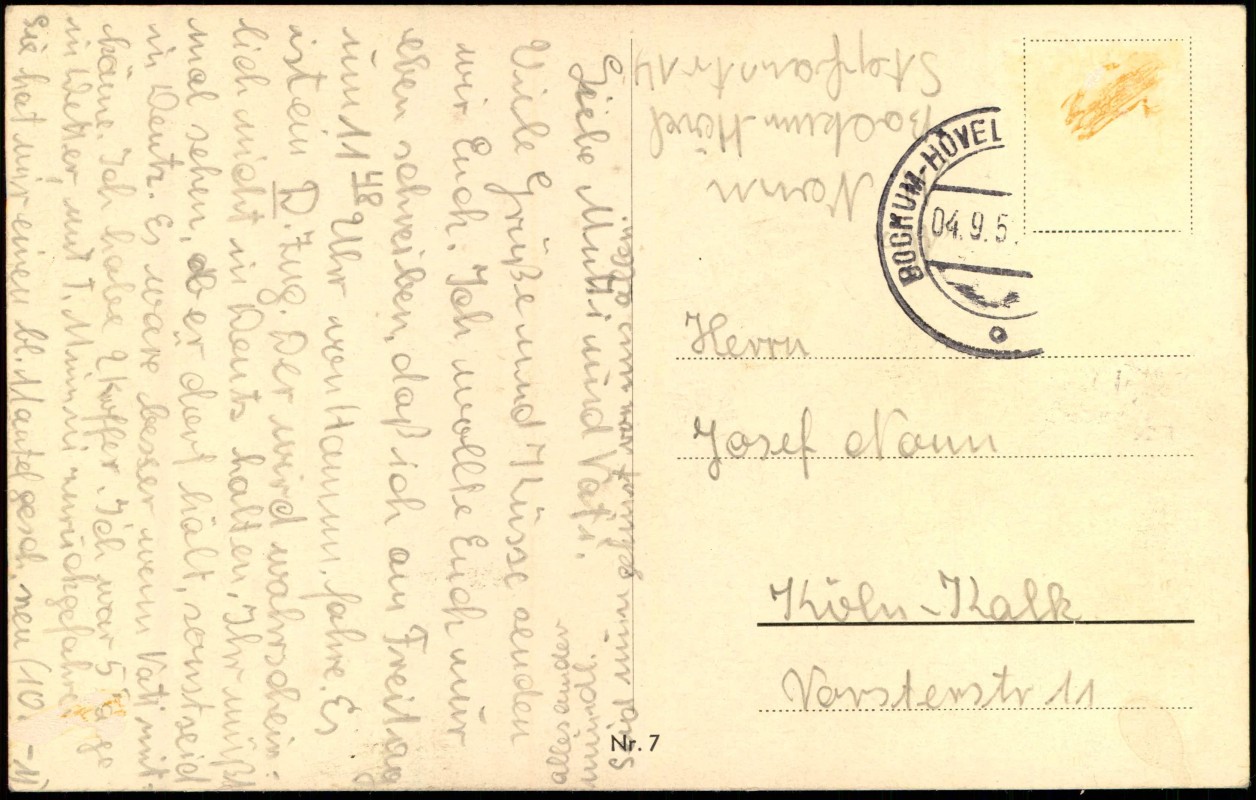 Liebe Mutti und Vati.
Viele Grüße und Küsse senden
wir Euch. Ich wollte Euch nur
eben schreiben, daß ich am Freitag
um 11 48 Uhr von Hamm fahre. Es
ist ein D. Zug. Der wird wahrschein-
lich nicht in Deutz halten. Ihr müßt
mal sehen, ob er dort hält, sonst seid
in Deutz. Es wäre besser wenn Vati mit
käme. Ich habe 2 Koffer. Ich war 5 Tage
in Wetter, mit T. Mimmi zurückgefahren
Sie hat mir einen bl. Mantel gesch. neu (10.-11
alles wieder
Nonn
Bockum Hövel
Stephanstr 14
BOCKUM-HÖVEL
04.9.5
Herrn
Josef Nonn
Köln-Kalk
Vorsterstr 11
Nr. 7